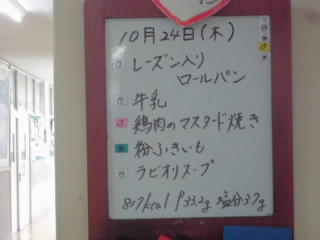 10月24日(木)
レーズン入り
ロールパン
牛乳
鶏肉のマスタード焼き
粉ふきいも
ラビオリスープ
817kcal P33.2g 塩分3.7g